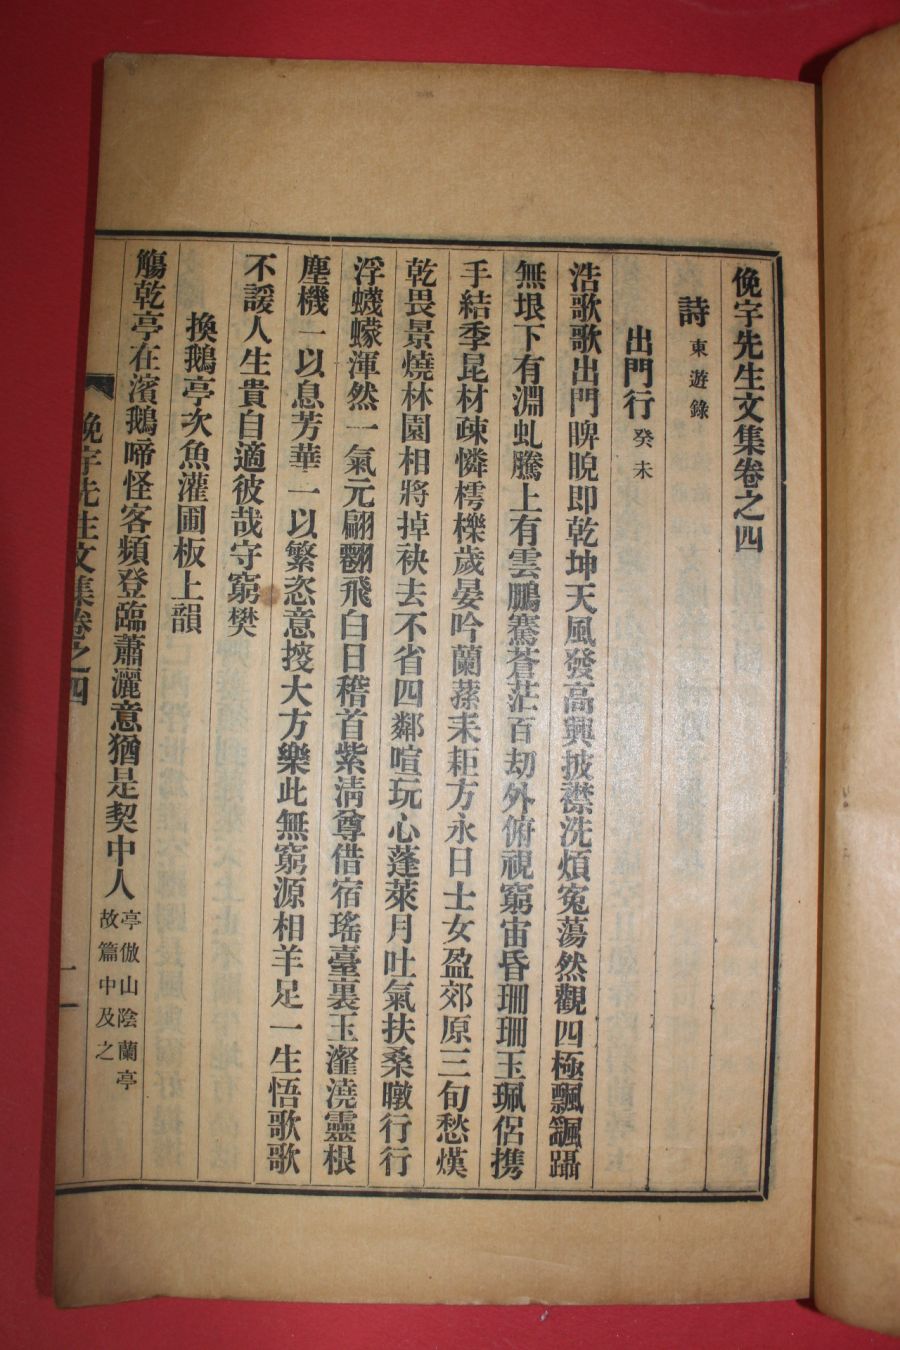 俛宇先生文集卷之四
詩 東遊錄
出門行 癸未
浩歌歌出門睥睨卽乾坤天風發高興披襟洗煩寃蕩然觀四極飄飄躡
無垠下有淵虬騰上有雲鵬騫蒼茫百劫外俯視窮宙昏珊珊玉珮侶携
手結季昆材疎憐樗櫟歲晏吟蘭蓀耒耟方永日士女盈郊原三旬愁熯
乾畏景燒林園相將掉袂去不省四鄰喧玩心蓬萊月吐氣扶桑暾行行
浮蠛蠓渾然一氣元翩翾飛白日稽首紫淸尊借宿瑤臺裏玉瀣澆靈根
塵機一以息芳華一以繁恣意㨃大方樂此無窮源相羊足一生悟歌歌
不諼人生貴自適彼哉守窮樊
換鵝亭次魚灌圃板上韻
觴乾亭在濱鵝啼怪客頻登臨蕭灑意猶是契中人 亭倣山陰蘭亭
故篇中及之
俛宇先生文集卷之四
一